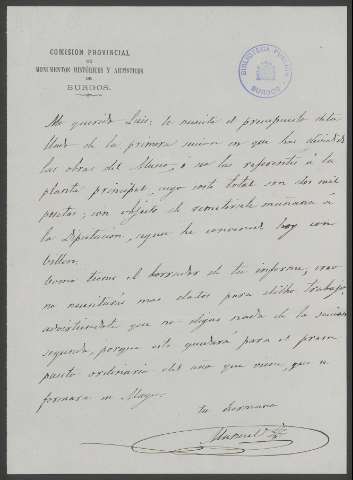 COMISIÓN PROVINCIAL
DE
MONUMENTOS HISTÓRICOS Y ARTÍSTICOS
DE
BURGOS.
BIBLIOTECA PUBLICA
BURGOS
Mi querido Luis: te remito el presupuesto deta-
llado de la primera sección en que has dividido
las obras del Museo, ó sea las referentes á la
planta principal, cuyo coste total son dos mil
pesetas; con objeto de remitirle mañana á
la Diputación, segun he convenido hoy con
Como tienes el borrador de tu informe, creo
no necesitarás mas datos para dicho trabajo
advirtiendote que no digas nada de la sección
segunda, porque esta quedará para el presu-
puesto ordinario del año que viene, que se
formará en Mayo.
tu hermano
Manuel